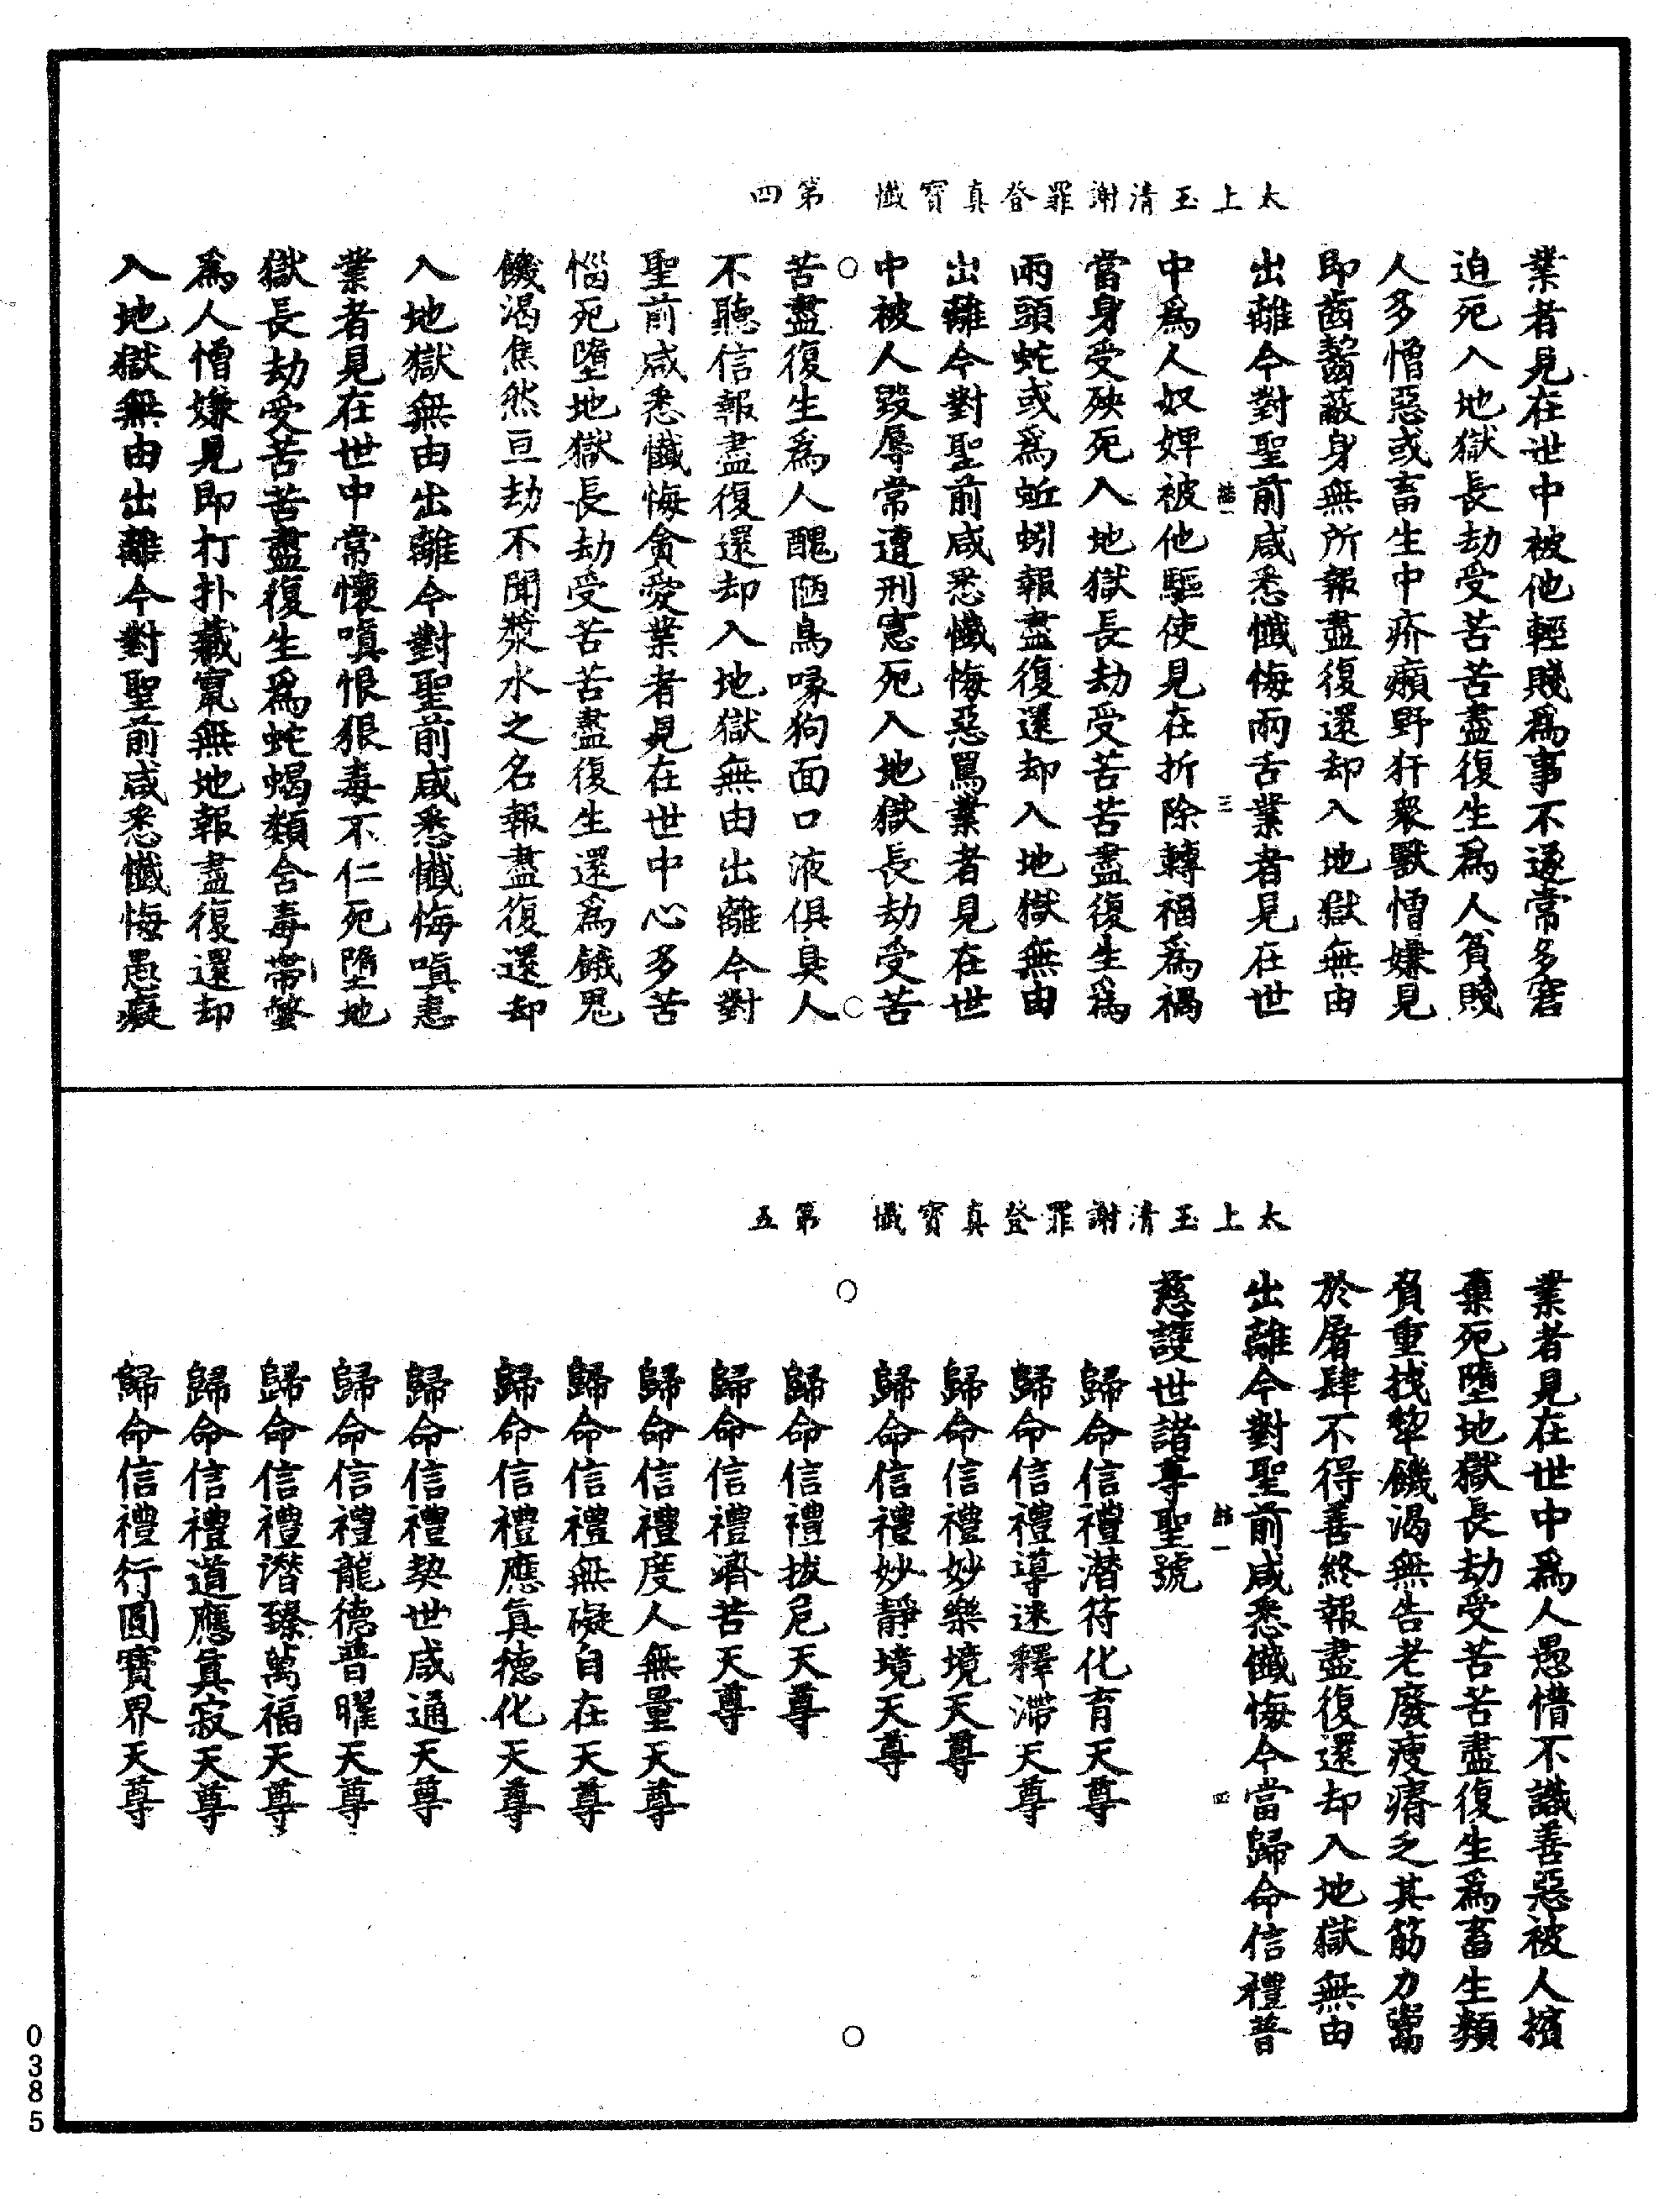 太上玉清謝罪登真寶懺　第四
業者見在世中被他輕賤爲事不遂常多窘
迫死入地獄長劫受苦苦盡復生爲人貧賤
人多憎惡或畜生中疥癩野犴衆獸憎嫌見
即齒齧蔽身無所報盡復還却入地獄無由
出離今對聖前咸悉懺悔兩舌業者見在世
三
中爲人奴婢被他驅使見在折除轉福爲禍
當身受殃死入地獄長劫受苦苦盡復生爲
兩頭蛇或爲蚯蚓報盡復還却入地獄無由
出離今對聖前咸悉懺悔惡罵業者見在世
中被人毀辱常遭刑憲死入地獄長劫受苦
苦盡復生爲人醜陋鳥喙狗面口液俱臭人
不聽信報盡復還却入地獄無由出離今對
聖前咸悉懺悔貪愛業者見在世中心多苦
惱死墮地獄長劫受苦苦盡復生還爲餓鬼
饑渴焦然亘劫不聞漿水之名報盡復還却
入地獄無由出離今對聖前咸悉懺悔嗔恚
業者見在世中常懷嗔恨狠毒不仁死墮地
獄長劫受苦苦盡復生爲蛇蝎類含毒帶螫
爲人憎嫌見即打扑藏竄無地報盡復還却
入地獄無由出離今對聖前咸悉懺悔愚癡
太上玉清謝罪登真寶懺　第五
業者見在世中爲人愚惜不識善惡被人擯
棄死墮地獄長劫受苦苦盡復生爲畜生類
負重拽犂饑渴無告老廢瘦瘠乏其筋力鬻
於屠肆不得善終報盡復還却入地獄無由
出離今對聖前咸悉懺悔今當歸命信禮普
四
慈護世諸尊聖號
歸命信禮潜符化育天尊
歸命信禮導迷釋滯天尊
歸命信禮妙樂境天尊
歸命信禮妙靜境天尊
歸命信禮拔危天尊
歸命信禮濟苦天尊
歸命信禮度人無量天尊
歸命信禮無礙自在天尊
歸命信禮應真德化天尊
歸命信禮契世咸通天尊
歸命信禮龍德普曜天尊
歸命信禮潜臻萬福天尊
歸命信禮道應真寂天尊
歸命信禮行圓寶界天尊
0385